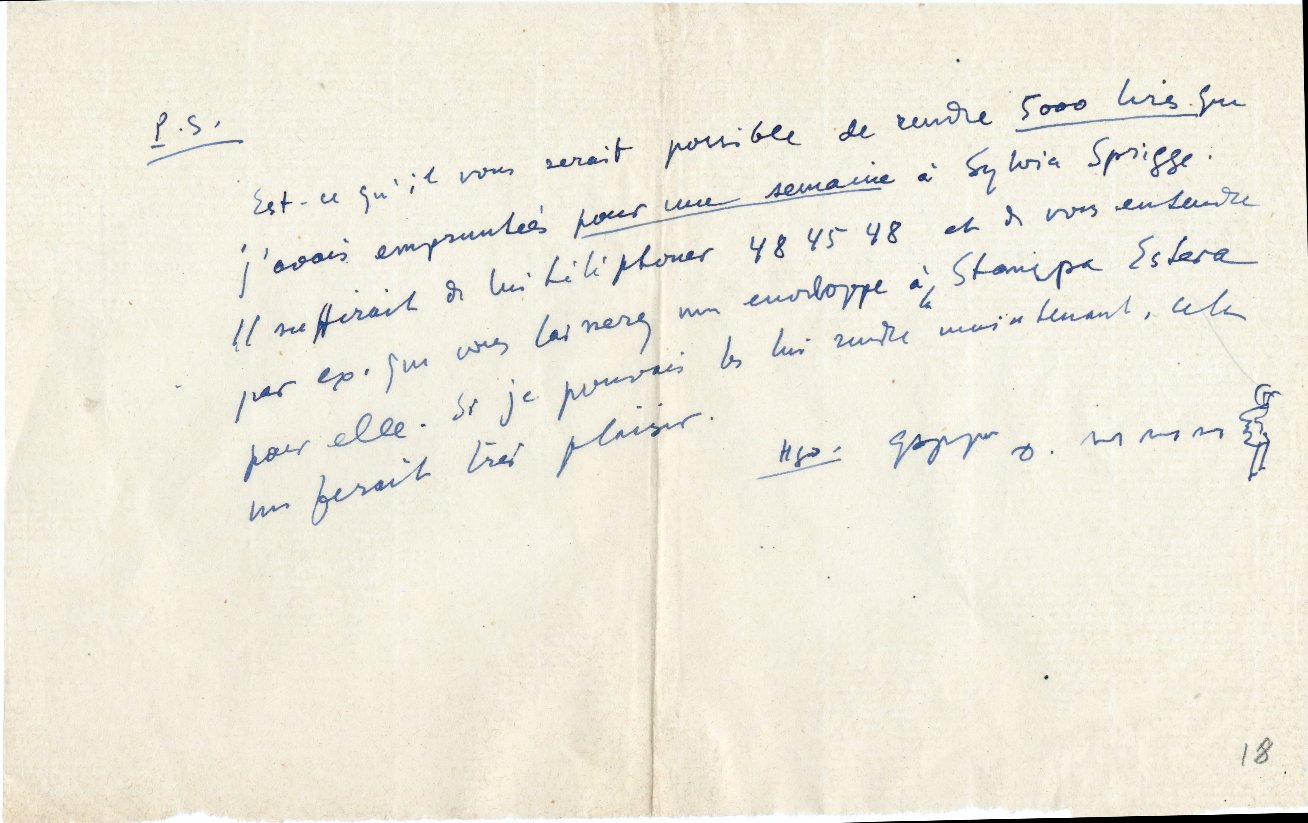 P.S.
Est-ce qu'il vous serait possible de rendre 5000 lires que
j'avais empruntées pour une semaine à Sylvia Sprigge.
Il suffirait de lui téléphoner 48 45 48 et de vous entendre
par ex. que vous laisserez une enveloppe à la Stampa Estera
pour elle. Si je pouvais les lui rendre maintenant, cela
me ferait très plaisir.
18